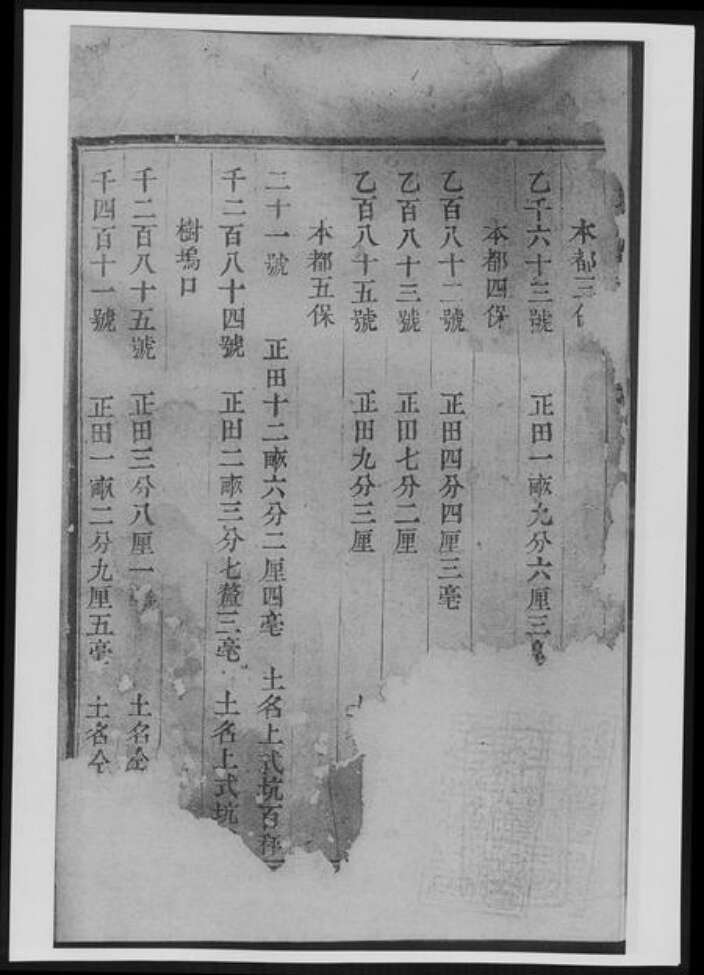 本都三保
乙千六十三號 正田一畝九分六厘三毫
本都四保
乙百八十二號 正田四分四厘三毫
乙百八十三號 正田七分二厘
乙百八十五號 正田九分三厘
本都五保
二十一號 正田十二畝六分二厘四毫 土名上式坑百種
千二百八十四號 正田二畝三分七釐三毫 土名上式坑
樹塢口
千二百八十五號 正田三分八厘一 土名仝
千四百十一號 正田一畝二分九厘五毫 土名仝